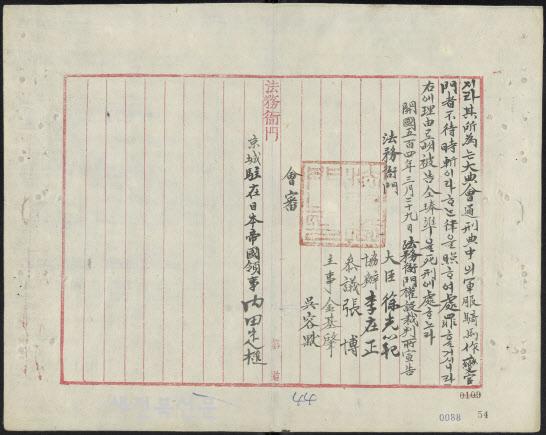 지라其所為는大典會通刑典中의軍服騎馬作變官
門者不待時斬이라ᄒᆞ는律을照ᄒᆞ여處罪ᄒᆞᆯ거시니라
右에理由로明被告全琫準을死刑에處ᄒᆞ노라
開國五百四年三月二十九日法務衙門權設裁判所宣告
法務衙門
大臣 徐光範
協辦 李在正
參議 張博
主事 金基肇
吳容默
會審
京城駐在日本帝國領事 內田定槌
法務衙門
44
0109
0088
54